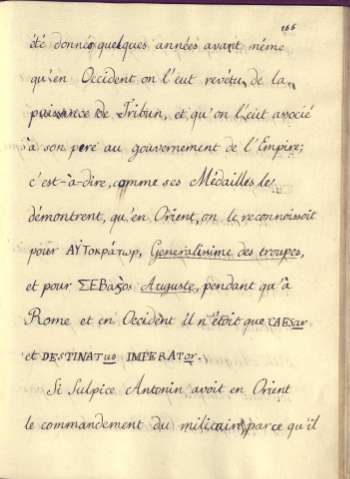 166
été donné, quelques années avant même
qu'en Occident on l'eut revêtu de la
puissance de Tribun, et qu'on l'eut associé
à son pere au gouvernement de l'Empire;
c'est-à-dire, comme ses Médailles le
démontrent, qu'en Orient, on le reconnoissoit
pour ΑΫΤοκράτωρ, Generalissime des troupes,
et pour ΣΕΒαςος Auguste, pendant qu'à
Rome et en Occident il n'étoit que CAESar
et DESTINATus IMPERATor.
Si Sulpice Antonin avoit en Orient
le commandement du militaire, parce qu'il